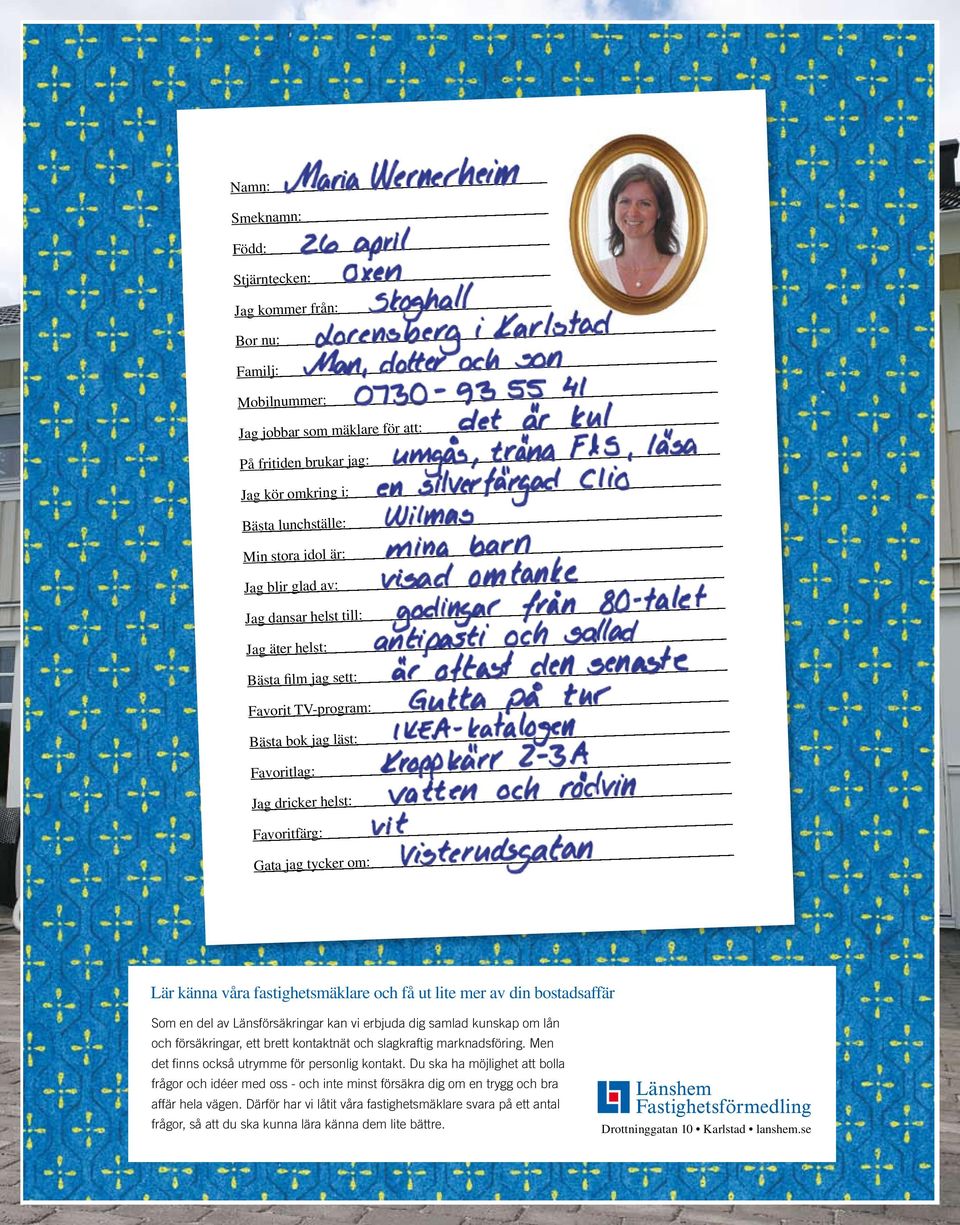 Namn: Maria Wernerheim
Smeknamn:
Född: 26 april
Stjärntecken: Oxen
Jag kommer från: Skoghall
Bor nu: Lorensberg i Karlstad
Familj: Man, dotter och son
Mobilnummer: 0730-93 55 41
Jag jobbar som mäklare för att: det är kul
På fritiden brukar jag: umgås, träna F&S, läsa
Jag kör omkring i: en silverfärgad Clio
Bästa lunchställe: Wilmas
Min stora idol är: mina barn
Jag blir glad av: visad omtanke
Jag dansar helst till: godingar från 80-talet
Jag äter helst: antipasti och sallad
Bästa film jag sett: är oftast den senaste
Favorit TV-program: Gutta på tur
Bästa bok jag läst: IKEA-katalogen
Favoritlag: Kroppkärr Z-3A
Jag dricker helst: vatten och rödvin
Favoritfärg: vit
Gata jag tycker om: Visterudsgatan
Lär känna våra fastighetsmäklare och få ut lite mer av din bostadsaffär
Som en del av Länsförsäkringar kan vi erbjuda dig samlad kunskap om lån
och försäkringar, ett brett kontaktnät och slagkraftig marknadsföring. Men
det finns också utrymme för personlig kontakt. Du ska ha möjlighet att bolla
frågor och idéer med oss - och inte minst försäkra dig om en trygg och bra
affär hela vägen. Därför har vi låtit våra fastighetsmäklare svara på ett antal
frågor, så att du ska kunna lära känna dem lite bättre.
Länshem
Fastighetsförmedling
Drottninggatan 10 • Karlstad • lanshem.se